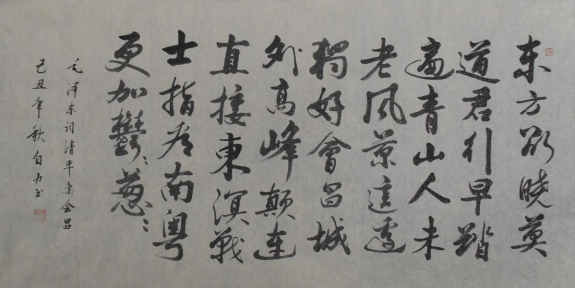 东方欲晓莫
道君行早踏
遍青山人未
老风景這邊
獨好會昌城
外高峰颠连
直接東溟戰
士指看南粤
更加鬱々葱々
毛泽东词清平樂会昌
己丑年秋自力书